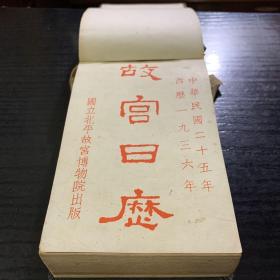 中華民國二十五年
西歷一九三六年
故宫日歷
國立北平故宮博物院出版